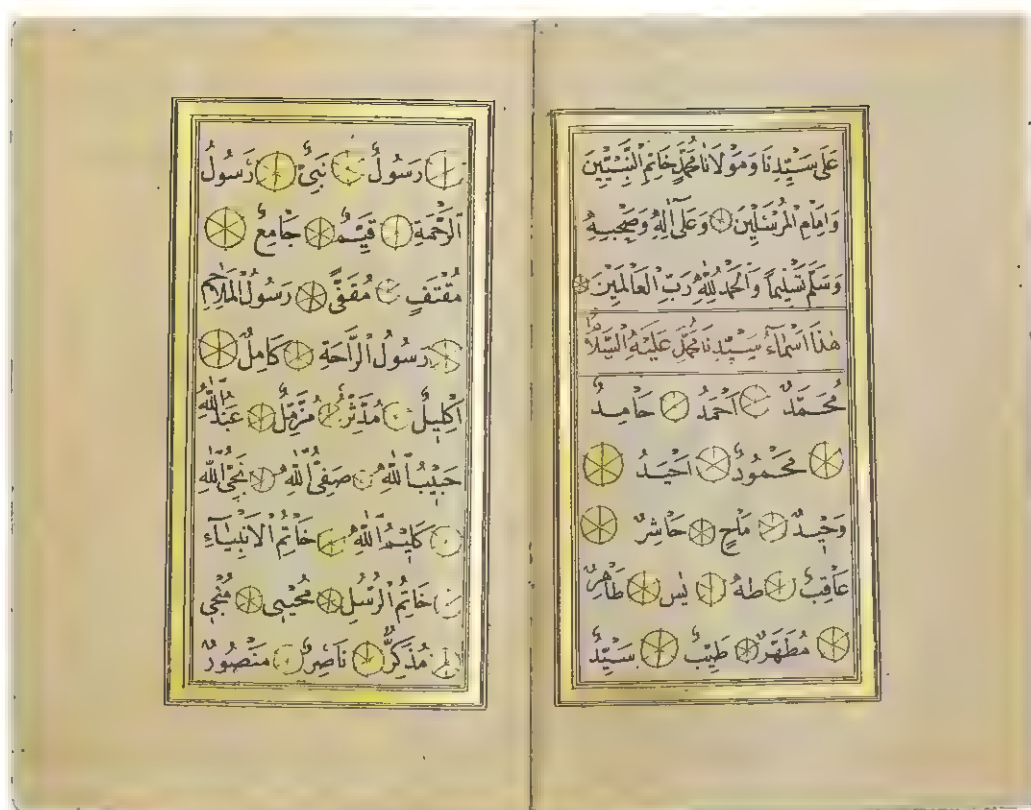 عَلَى سَيِّدِنَا وَمَوْلَانَا مُحَمَّدٍ خَاتِمِ النَّبِيِّينَ
وَاِمَامِ الْمُرْسَلِينَ وَعَلَى اٰلِهِ وَصَحْبِهِ
وَسَلَّمَ تَسْلِيماً وَالْحَمْدُ لِلّٰهِ رَبِّ الْعَالَمِينَ
هٰذَا اَسْمَاءُ سَيِّدِنَا مُحَمَّدٍ عَلَيْهِ السَّلَامُ
مُحَمَّدٌ اَحْمَدُ حَامِدٌ
مَحْمُودٌ اَحْيَدُ
وَحِيدٌ مَاحٍ حَاشِرٌ
عَاقِبٌ طٰهٰ يٰس طَاهِرٌ
مُطَهَّرٌ طَيِّبٌ سَيِّدٌ
رَسُولٌ نَبِيٌّ رَسُولُ
الرَّحْمَةِ قَيِّمٌ جَامِعٌ
مُقْتَفٍ مُقَفًّى رَسُولُ الْمَلَاحِمِ
رَسُولُ الرَّاحَةِ كَامِلٌ
اِكْلِيلٌ مُدَّثِّرٌ مُزَّمِّلٌ عَبْدُ اللّٰهِ
حَبِيبُ اللّٰهِ صَفِيُّ اللّٰهِ نَجِيُّ اللّٰهِ
كَلِيمُ اللّٰهِ خَاتِمُ الْاَنْبِيَاءِ
خَاتِمُ الرُّسُلِ مُحْيِي مُنْجِي
مُذَكِّرٌ نَاصِرٌ مَنْصُورٌ